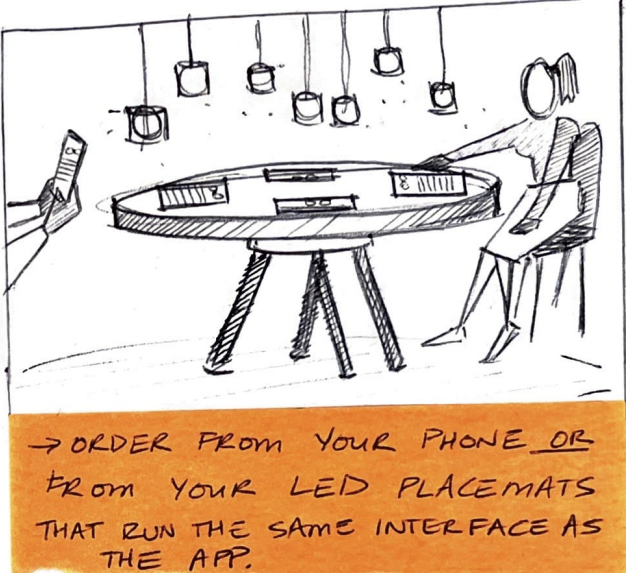 → ORDER FROM YOUR PHONE OR
FROM YOUR LED PLACEMATS
THAT RUN THE SAME INTERFACE AS
THE APP.